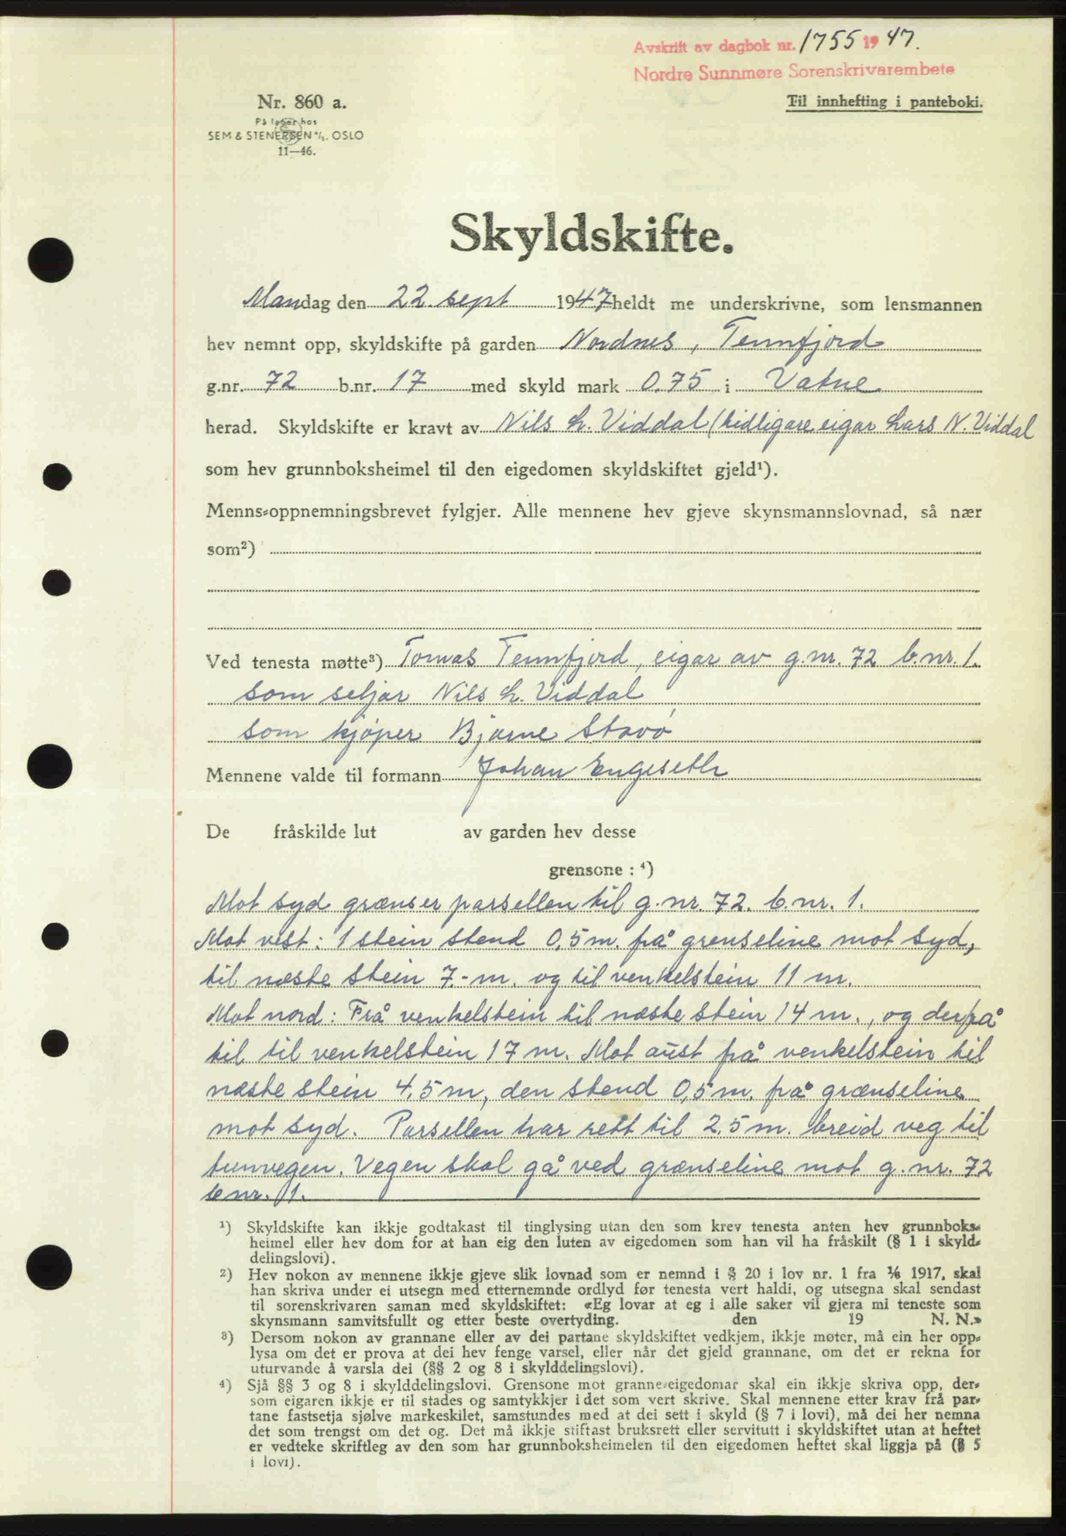 Avskrift av dagbok nr. 1755 1947.
Nordre Sunnmøre Sorenskrivarembete
Til innhefting i panteboki.
Nr. 860 a.
På lager hos
SEM & STENERSEN A/S. OSLO
11—46.
Skyldskifte.
Mandag den 22. sept 1947 heldt me underskrivne, som lensmannen
hev nemnt opp, skyldskifte på garden Nordnes, Tennfjord
g.nr. 72 b.nr. 17 med skyld mark 0.75 i Vatne
herad. Skyldskifte er kravt av Nils L. Viddal (tidligare eigar Lars N. Viddal
som hev grunnboksheimel til den eigedomen skyldskiftet gjeld¹).
Menns-oppnemningsbrevet fylgjer. Alle mennene hev gjeve skynsmannslovnad, så nær
som²)
Ved tenesta møtte³) Tomas Tennfjord, eigar av g.nr. 72 b.nr. 1.
som seljar Nils L. Viddal
som kjøper Bjarne Stavø
Mennene valde til formann Johan Engeseth
De fråskilde lut av garden hev desse
grensone : ⁴)
Mot syd grænser parsellen til g.nr. 72. b.nr. 1.
Mot vest: 1 stein stend 0,5 m. frå grenseline mot syd,
til næste stein 7.- m. og til venkelstein 11 m.
Mot nord: Frå venkelstein til næste stein 14 m., og derfrå
til til venkelstein 17 m. Mot aust frå venkelstein til
næste stein 4,5 m, den stend 0,5 m. frå grænseline
mot syd. Parsellen har rett til 2,5 m. breid veg til
tunvegen. Vegen skal gå ved grænseline mot g.nr. 72
b.nr. 1.
¹) Skyldskifte kan ikkje godtakast til tinglysing utan den som krev tenesta anten hev grunnboks-
heimel eller hev dom for at han eig den luten av eigedomen som han vil ha fråskilt (§ 1 i skyld-
delingslovi).
²) Hev nokon av mennene ikkje gjeve slik lovnad som er nemnd i § 20 i lov nr. 1 fra ⅟₆ 1917, skal
han skriva under ei utsegn med etternemnde ordlyd før tenesta vert haldi, og utsegna skal sendast
til sorenskrivaren saman med skyldskiftet: «Eg lovar at eg i alle saker vil gjera mi teneste som
skynsmann samvitsfullt og etter beste overtyding. den 19 N. N.»
³) Dersom nokon av grannane eller av dei partane skyldskiftet vedkjem, ikkje møter, må ein her opp-
lysa om det er prova at dei hev fenge varsel, eller når det gjeld grannane, om det er rekna for
uturvande å varsla dei (§§ 2 og 8 i skylddelingslovi).
⁴) Sjå §§ 3 og 8 i skylddelingslovi. Grensone mot granne-eigedomar skal ein ikkje skriva opp, der-
som eigaren ikkje er til stades og samtykkjer i det som vert skrive. Skal mennene etter krav frå par-
tane fastsetja sjølve markeskilet, samstundes med at dei sett i skyld (§ 7 i lovi), må dei her nemna
det som trengst om det og. Det må ikkje stiftast bruksrett eller servitutt i skyldskiftet utan at heftet
er vedteke skriftleg av den som har grunnboksheimelen til den eigedomen heftet skal liggja på (§ 5
i lovi).